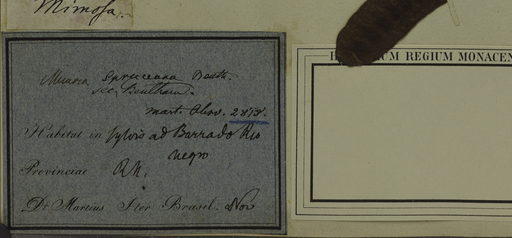 Mimosa.
Mimosa Spruceana Benth.
sec. Bentham.
mart. Obs. 2818.
Habitat in sylvis ad Barra do Rio
negro
Provinciae R.N.
Dr Martius Iter Brasil. Nov
HERBARIUM REGIUM MONACEN